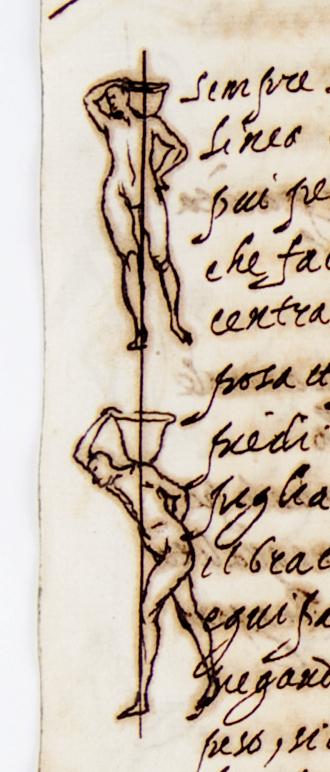 sempre
linea
piu pe
che fac
centra
posa u
piedi
piglia
il brac
equipa
negand
peso, si